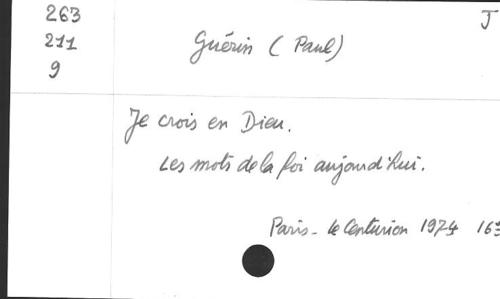 263
J
211
Guérin (Paul)
9
Je crois en Dieu.
Les mots de la foi aujourd'hui.
Paris - le Centurion 1974